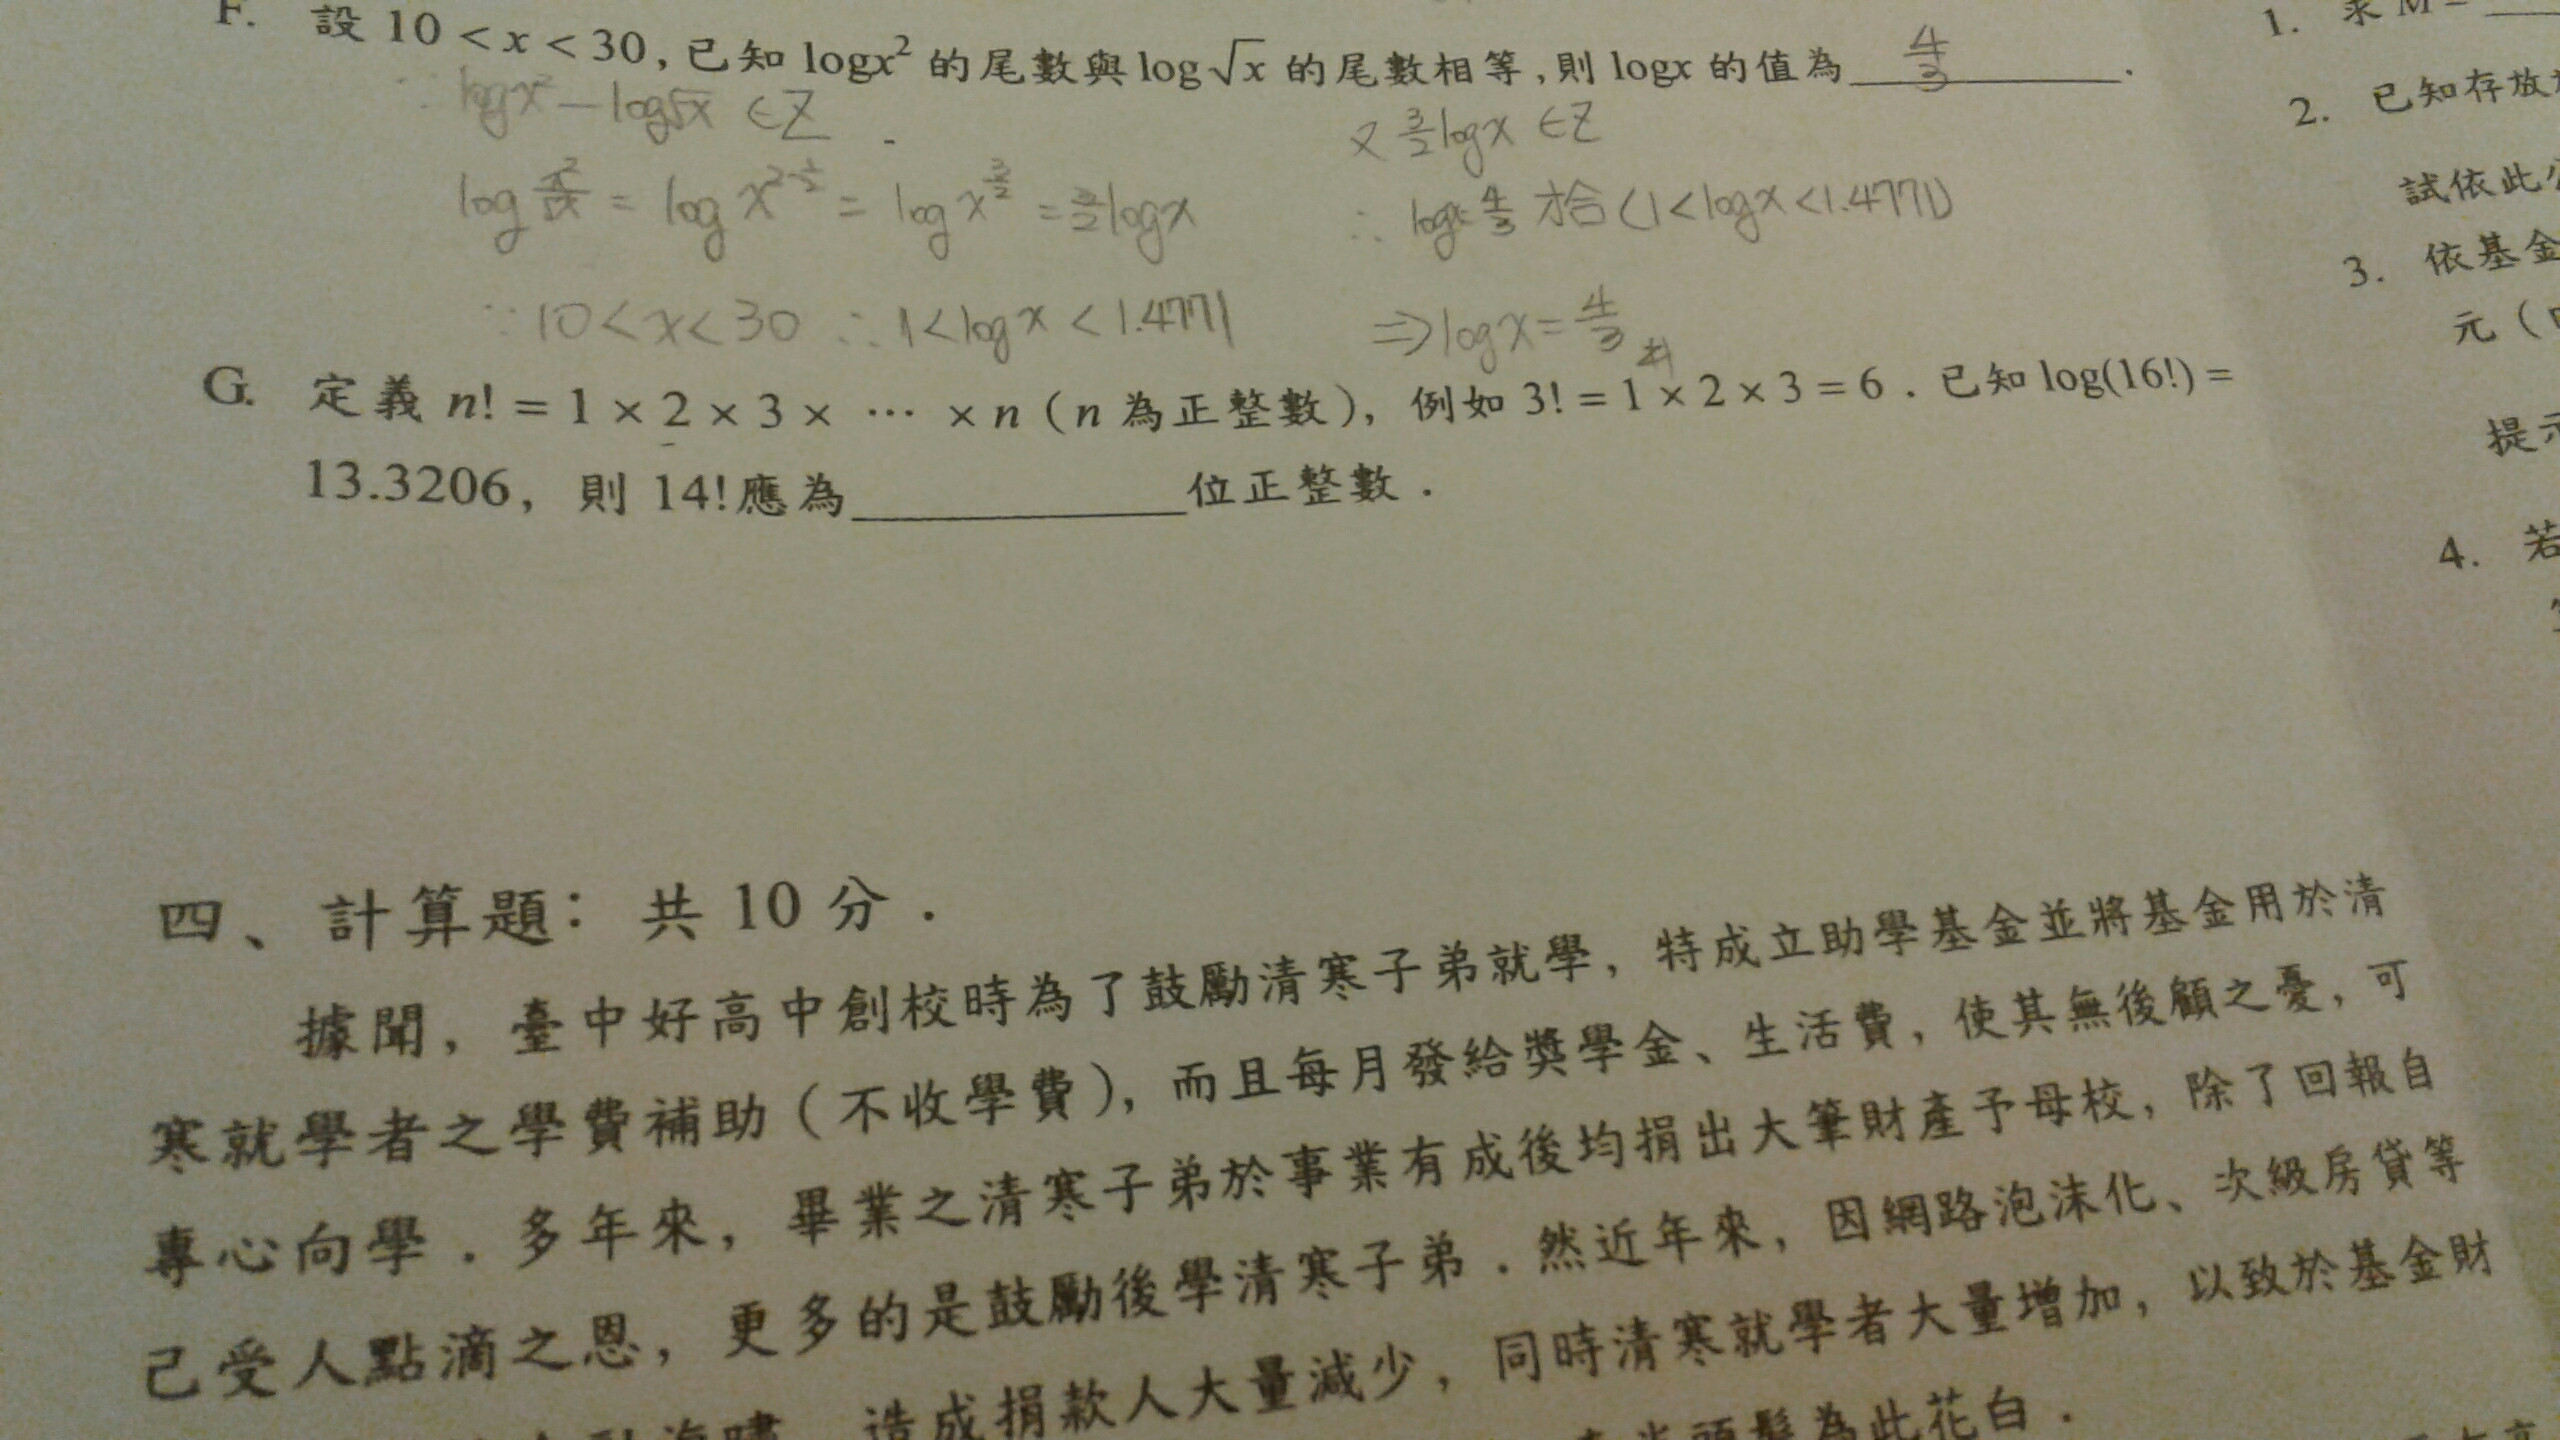 F. 設 10 < x < 30, 已知 logx² 的尾數與 log√x 的尾數相等, 則 logx 的值為 4/3 .
∵ logx² − log√x ∈ Z
log x²/√x = log x^(2-1/2) = log x^(3/2) = 3/2 logx
∵ 10 < x < 30 ∴ 1 < logx < 1.4771
又 3/2 logx ∈ Z
∴ logx = 4/3 才合 (1 < logx < 1.4771)
⇒ logx = 4/3 #
G. 定義 n! = 1 × 2 × 3 × ⋯ × n ( n 為正整數 ), 例如 3! = 1 × 2 × 3 = 6 . 已知 log(16!) =
13.3206, 則 14! 應為 位正整數 .
四、計算題: 共 10 分 .
據聞, 臺中好高中創校時為了鼓勵清寒子弟就學, 特成立助學基金並將基金用於清
寒就學者之學費補助 ( 不收學費 ), 而且每月發給獎學金、生活費, 使其無後顧之憂, 可
專心向學 . 多年來, 畢業之清寒子弟於事業有成後均捐出大筆財產予母校, 除了回報自
己受人點滴之恩, 更多的是鼓勵後學清寒子弟 . 然近年來, 因網路泡沫化、次級房貸等
造成捐款人大量減少, 同時清寒就學者大量增加, 以致於基金財
頭髮為此花白 .
1. 求 M =
2. 已知存放
試依此
3. 依基金
元 (
提示
4. 若